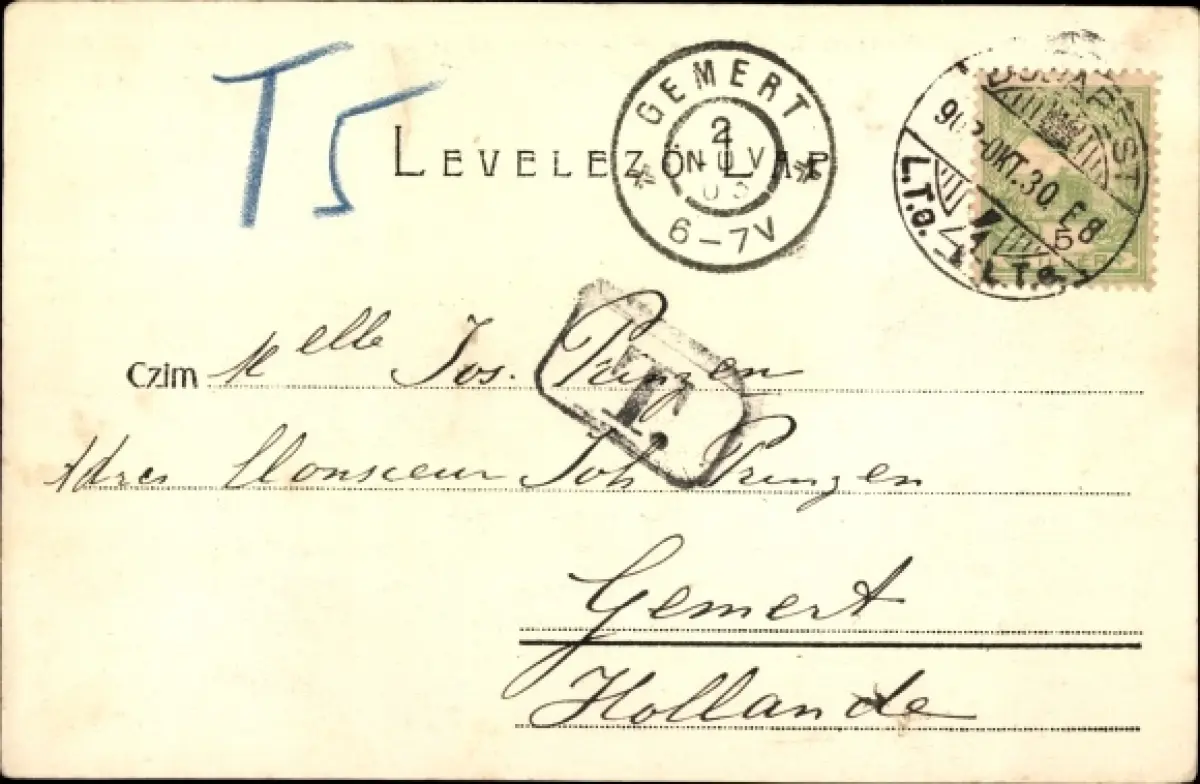 T5
LEVELEZŐ LAP
GEMERT
2 NOV 03
6-7V
BUDAPEST
903 OKT. 30. E 8
L.T.O. L.T.O.
5
FILLÉR
T.
Czim Melle Jos. Prinzen
Adres Monsieur Joh Prinzen
Gemert
Hollande